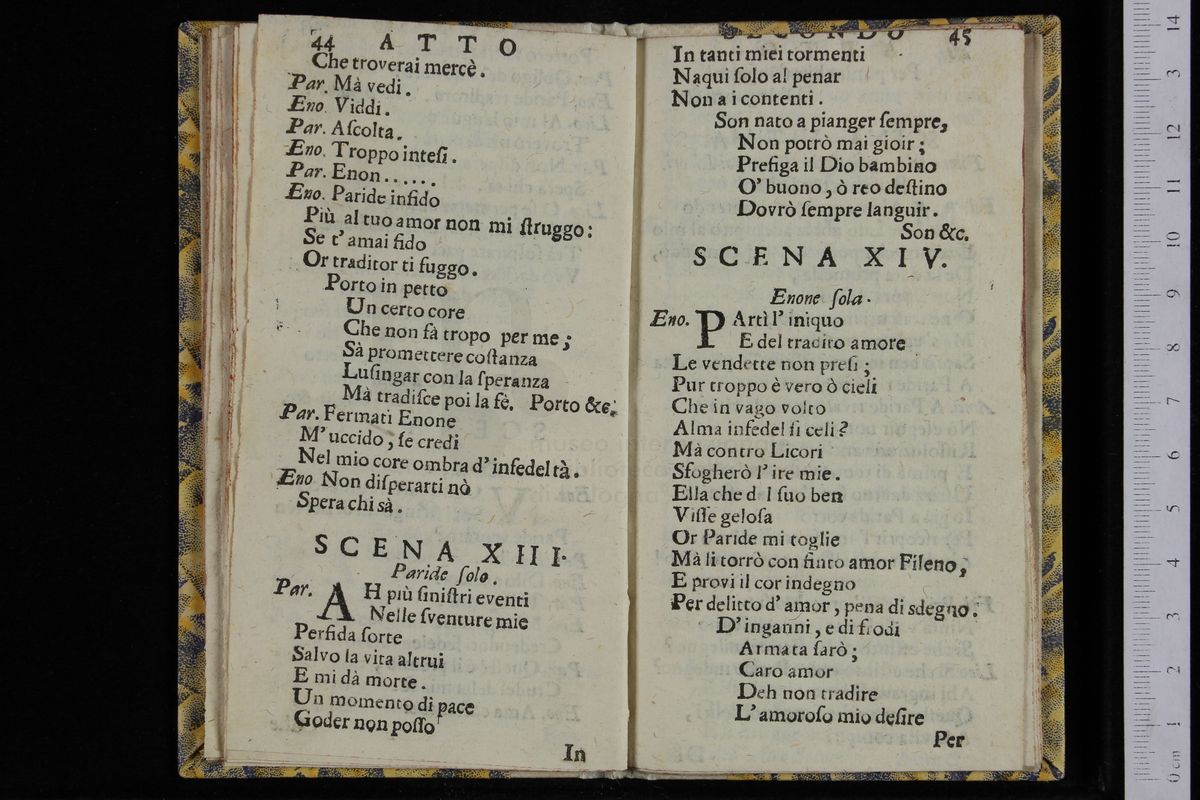 44 ATTO
Che troverai mercè.
Par. Mà vedi.
Eno. Viddi.
Par. Aſcolta.
Eno. Troppo inteſi.
Par. Enon......
Eno. Paride infido
Più al tuo amor non mi ſtruggo:
Se t' amai fido
Or traditor ti fuggo.
Porto in petto
Un certo core
Che non fà tropo per me;
Sà promettere coſtanza
Luſingar con la ſperanza
Mà tradiſce poi la fè. Porto &c.
Par. Fermati Enone
M' uccido, ſe credi
Nel mio core ombra d' infedeltà.
Eno Non diſperarti nò
Spera chi sà.
SCENA XIII.
Paride ſolo.
Par. AH più ſiniſtri eventi
Nelle ſventure mie
Perfida ſorte
Salvo la vita altrui
E mi dà morte.
Un momento di pace
Goder non poſſo
In
SECONDO 45
In tanti miei tormenti
Naqui ſolo al penar
Non a i contenti.
Son nato a pianger ſempre,
Non potrò mai gioir;
Prefiga il Dio bambino
O' buono, ò reo deſtino
Dovrò ſempre languir.
Son &c.
SCENA XIV.
Enone ſola.
Eno. PArtì l' iniquo
E del tradito amore
Le vendette non preſi;
Pur troppo è vero ò cieli
Che in vago volto
Alma infedel ſi celi?
Mà contro Licori
Sfogherò l' ire mie.
Ella che d l ſuo ben
Viſſe geloſa
Or Paride mi toglie
Mà li torrò con finto amor Fileno,
E provi il cor indegno
Per delitto d' amor, pena di sdegno.
D' inganni, e di frodi
Armata ſarò;
Caro amor
Deh non tradire
L' amoroſo mio deſire
Per
0 cm 1 2 3 4 5 6 7 8 9 10 11 12 3 14